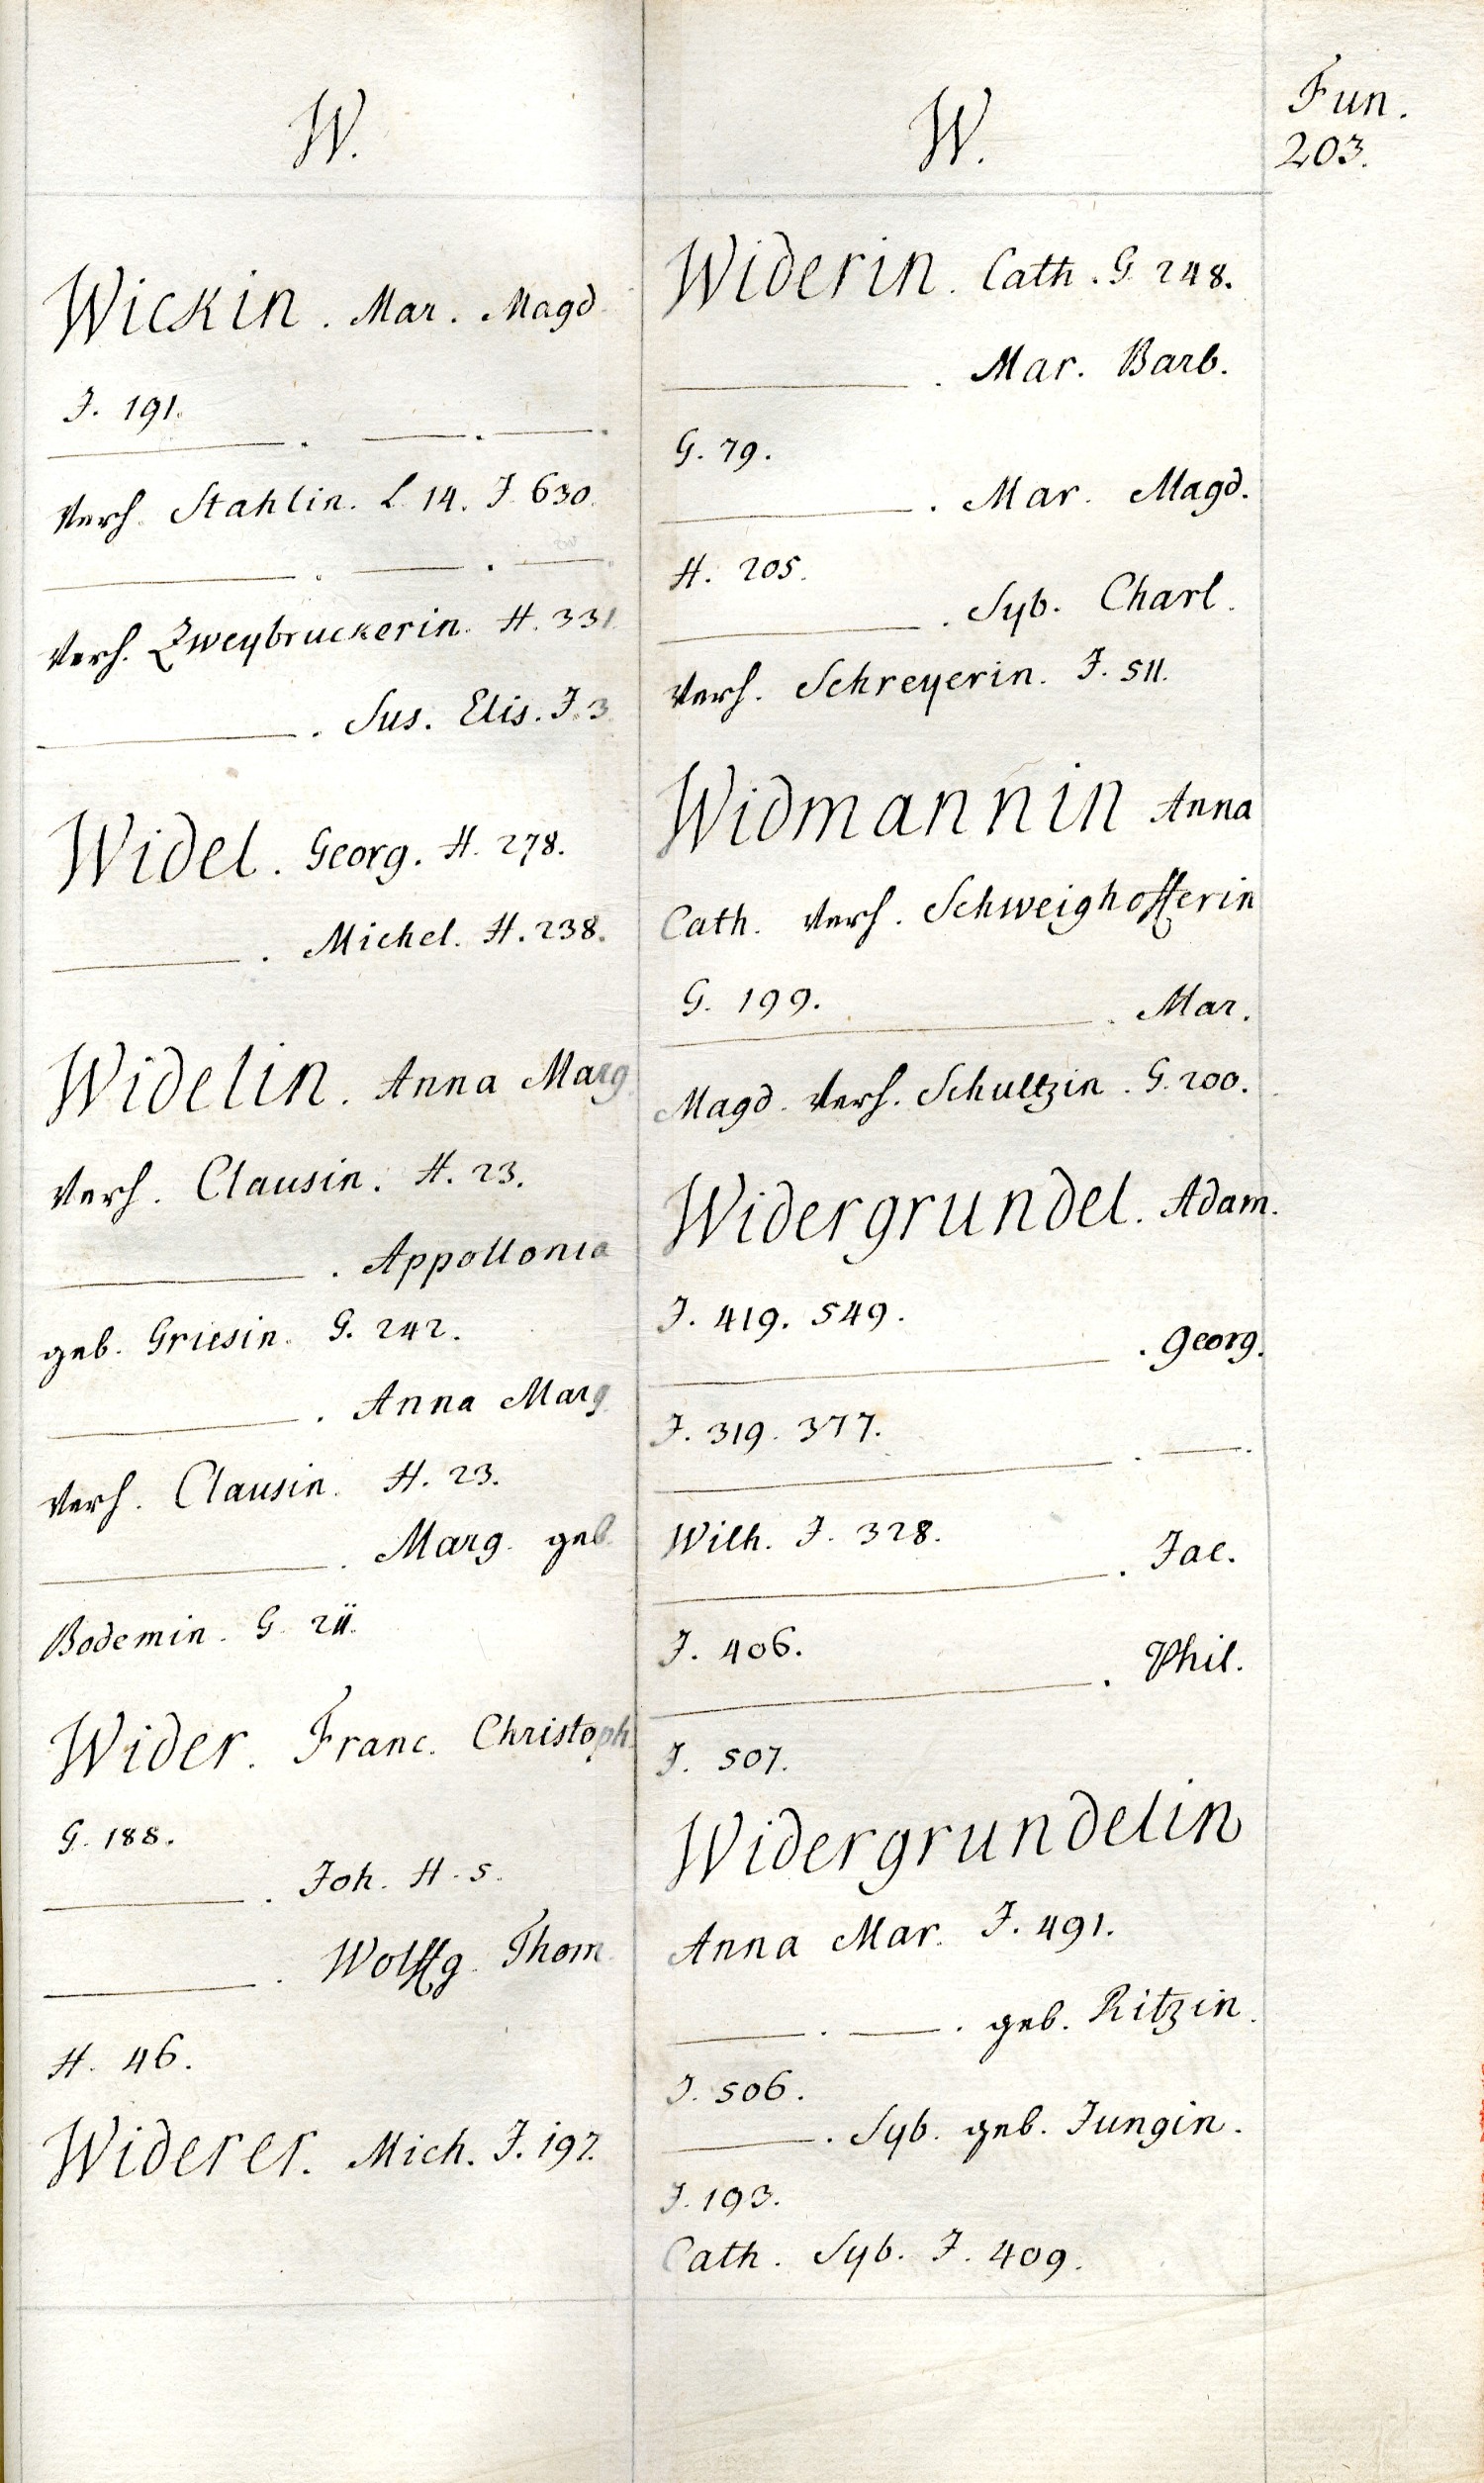 Fun.
203.
W.
Wickin. Mar. Magd.
J. 191.
——. ——. ——.
Verh. Stahlin. L. 14. J. 630.
——. ——. ——.
Verh. Zweybruckerin. H. 331.
——. Sus. Elis. J. 3
Widel. Georg. H. 278.
——. Michel. H. 238.
Widelin. Anna Marg.
Verh. Clausin. H. 23.
——. Appollonia
geb. Griesin. G. 242.
——. Anna Marg.
Verh. Clausin. H. 23.
——. Marg. geb.
Bodemin. G. 211.
Wider. Franc. Christoph.
G. 188.
——. Joh. H. 5.
——. Wolffg. Thom.
H. 46.
Widerer. Mich. J. 197.
W.
Widerin. Cath. G. 248.
——. Mar. Barb.
G. 79.
——. Mar. Magd.
H. 205.
——. Syb. Charl.
Verh. Schreyerin. J. 511.
Widmannin Anna
Cath. Verh. Schweighofferin
G. 199.
——. Mar.
Magd. Verh. Schultzin. G. 200.
Widergrundel. Adam.
J. 419. 549.
——. Georg.
J. 319. 377.
——. ——.
Wilh. J. 328.
——. Jac.
J. 406.
——. Phil.
J. 507.
Widergrundelin
Anna Mar. J. 491.
——. ——. geb. Ritzin.
J. 506.
——. Syb. geb. Jungin.
J. 193.
Cath. Syb. J. 409.